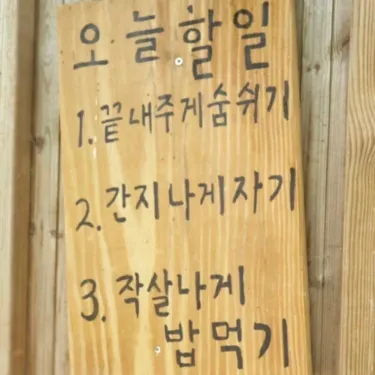 오늘할일
1. 끝내주게숨쉬기
2. 간지나게자기
3. 작살나게
밥먹기